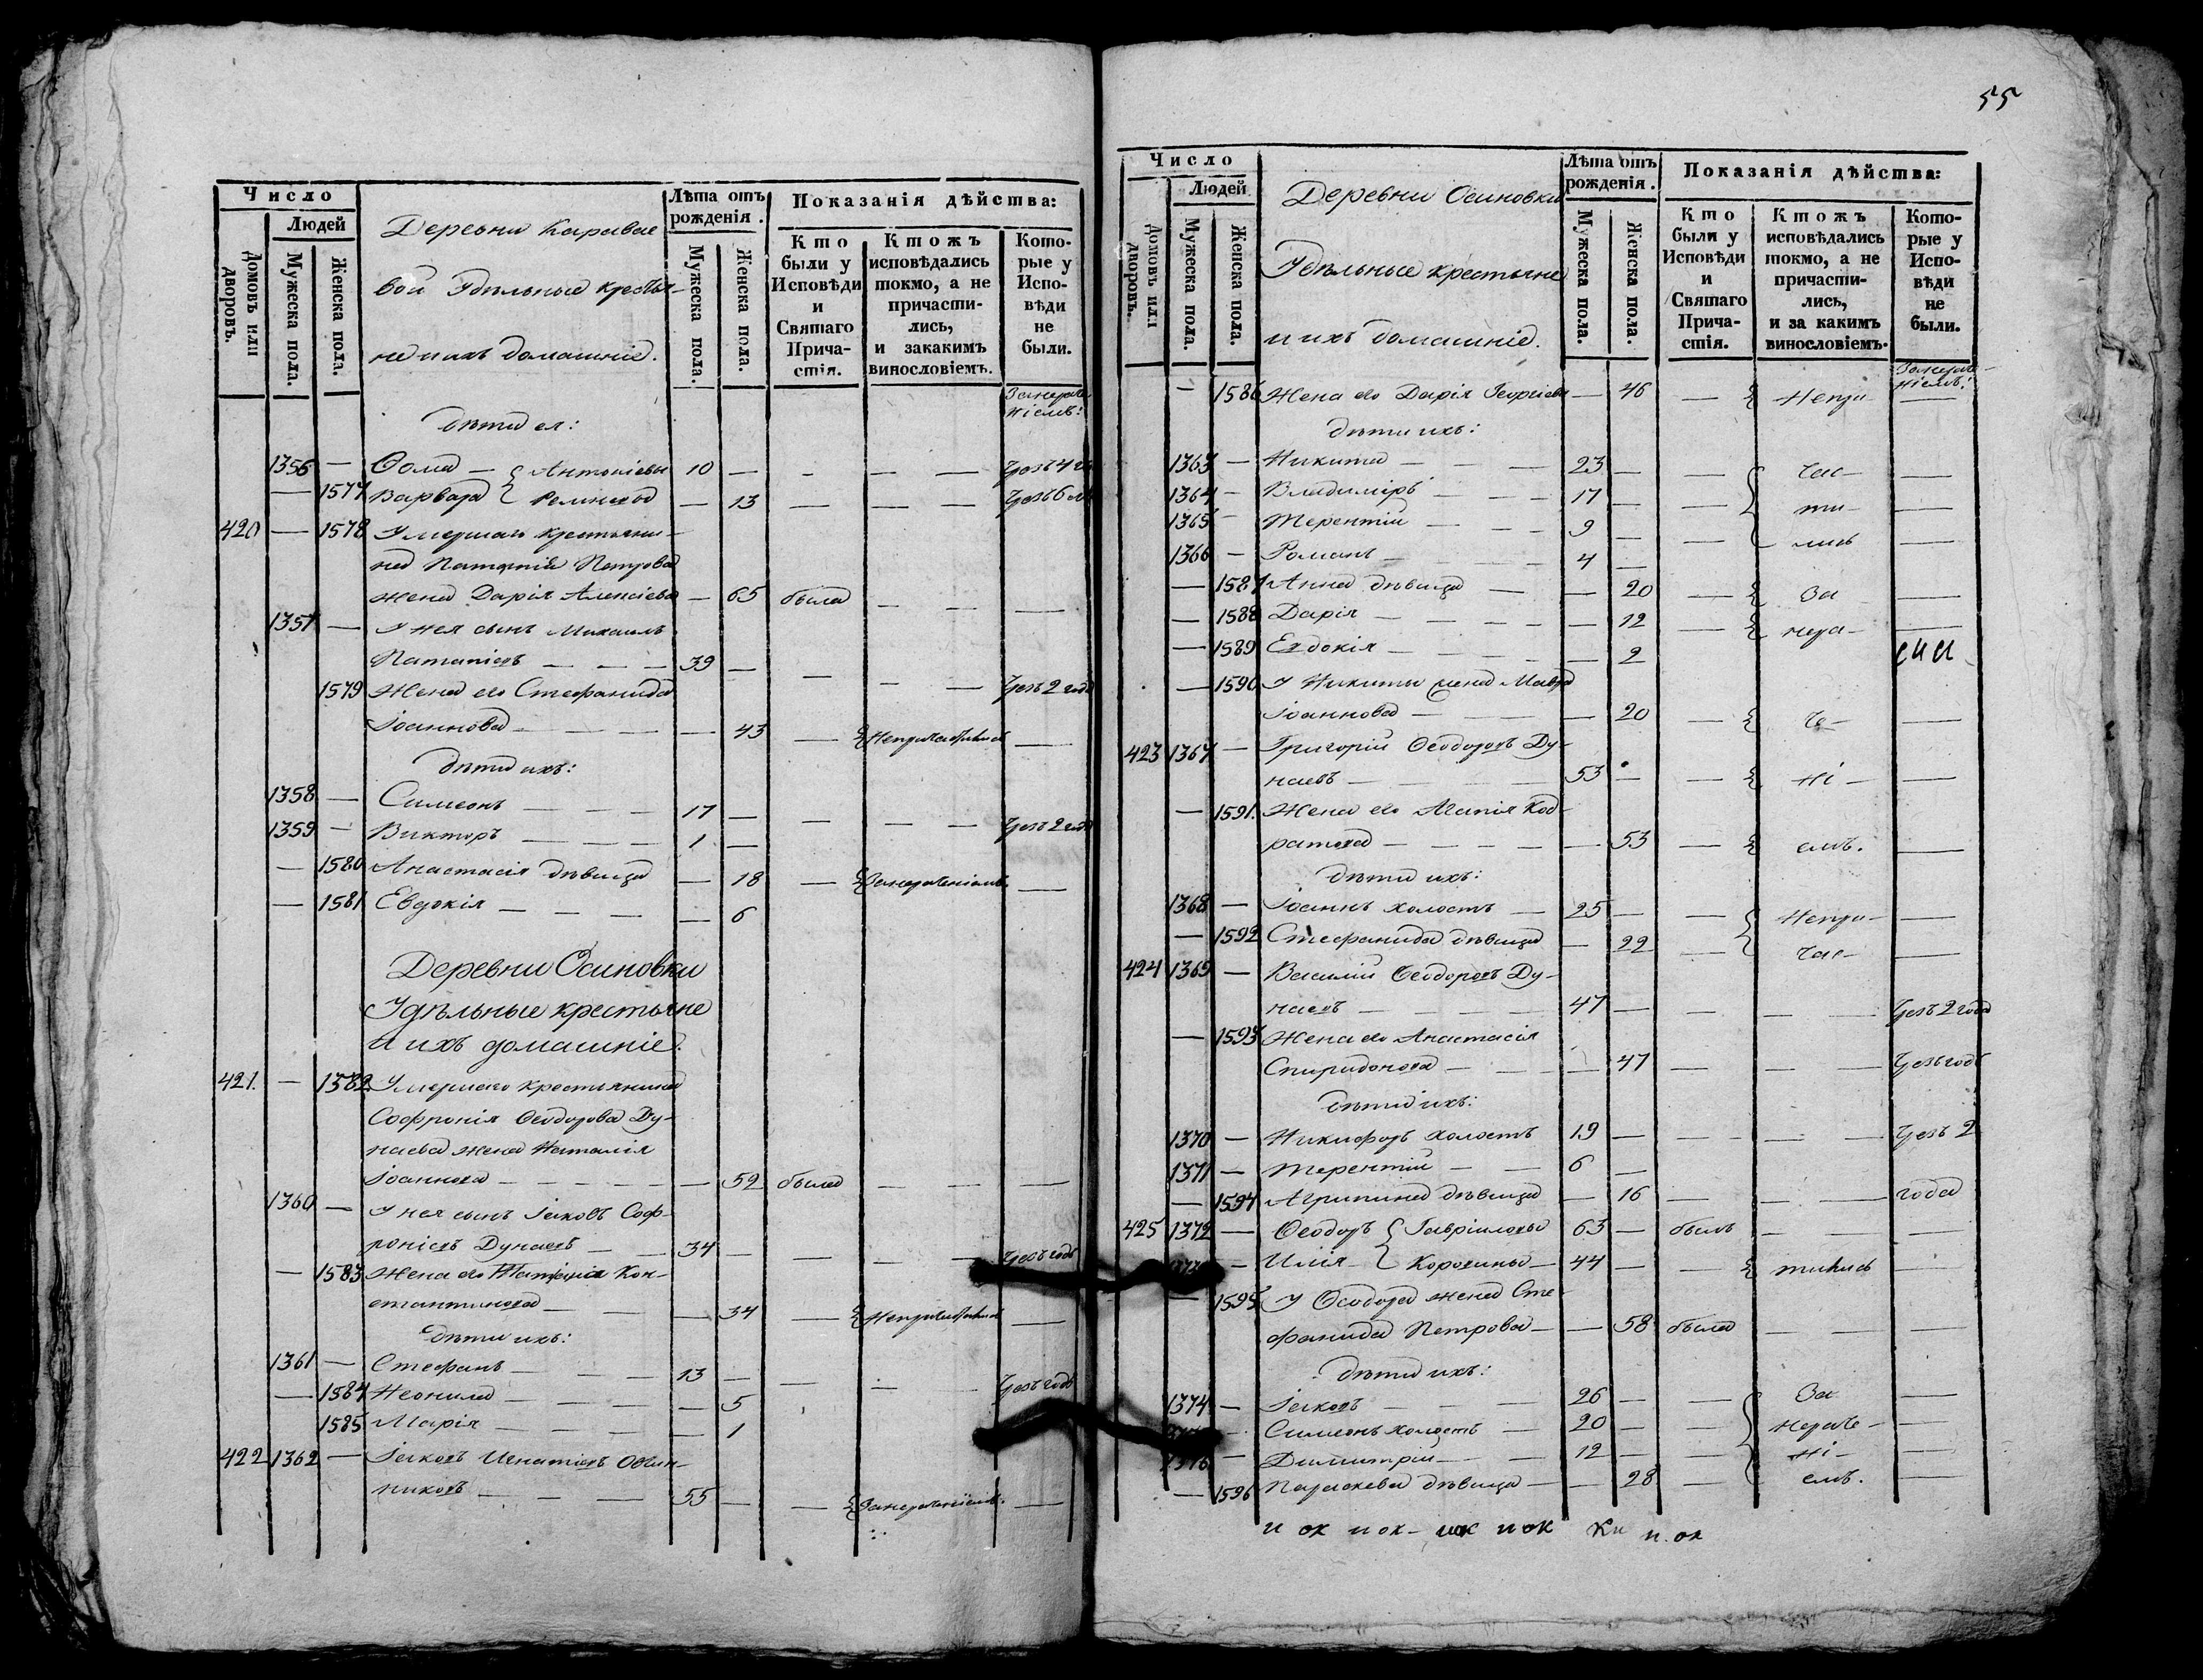 Число
Людей
Домовъ или дворовъ.
Мужеска пола.
Женска пола.
Деревни Каравае
вой Удѣльные кресть-
не и ихъ домашніе.
Лѣта отъ рожденія.
Мужеска пола.
Женска пола.
Показанія дѣйства:
Кто были у Исповѣди и Святаго Прича- стія.
Ктожъ исповѣдались токмо, а не причасти- лись, и закакимъ винословіемъ.
Кото- рые у Испо- вѣди не были.
дѣти ея:
1356 — Ѳома — { Антоніевы 10 — - — —
— 1577 Варвара { — 13 — — —
420 — 1578 Умершаго крестьяни-
на Петрова
жена Дарія Алексіева — 65 была — — —
1357 — У нея сынъ Михаилъ
39 — — — — Чрезъ 2 года
1579 Жена его Стефанида
Іоаннова — — 43 — { Непричастилась —
дѣти ихъ:
1358 — Симеонъ — — — 17 — — — — Чрезъ 2 года
1359 — Викторъ — — — 1 —
— 1580 Анастасія дѣвица — 18 — { Занераченіемъ —
— 1581 Евдокія — — — — 6
Деревни Осиновки
Удѣльные крестьяне
и ихъ домашніе.
421. — 1582 Умершаго крестьянина
Софронія Ѳеодорова Ду-
наева жена Наталія
Іоаннова — — — — — 52 была — — —
1360 — У нея сынъ Іаковъ Соф-
роніевъ Дунаевъ — — 34 — — — — Чрезъ годъ
— 1583 Жена его Кон-
стантинова — — — 34 — { Непричастилась —
дѣти ихъ:
1361 — Стефанъ — — — 13 — — — — Чрезъ годъ
— 1584 Неонила — — — — 5
1585 Марія — — — — 1
422 1362 — Іаковъ Игнатіевъ Овчин-
никовъ — — — 55 — — { Занераченіемъ —
55
Число
Людей
Домовъ или дворовъ.
Мужеска пола.
Женска пола.
Деревни Осиновки
Удѣльные крестьяне
и ихъ домашніе.
Лѣта отъ рожденія.
Мужеска пола.
Женска пола.
Показанія дѣйства:
Кто были у Исповѣди и Святаго Прича- стія.
Ктожъ исповѣдались токмо, а не причасти- лись, и за какимъ винословіемъ.
Кото- рые у Испо- вѣди не были.
— 1586 Жена его Дарія Георгіева — 46 — { Непри- —
дѣти ихъ:
1363 — Никита — — 23 — — { час- —
1364 — Владиміръ — — 17 — — ти- —
1365 — Терентій — — 9 — — лись —
1366 — Романъ — — 4 —
— 1587 Анна дѣвица — — 20 — { За —
— 1588 Дарія — — — — 12 — { нера- —
— 1589 Евдокія — — — — 2
— 1590 У Никиты жена Мавра
Іоаннова — — — 20 — { че- —
423 1367 — Григорій Ѳеодоровъ Ду-
наевъ — — 53 — — { ні- —
— 1591. Жена его Агапія Код-
ратова — — — — 53 — { емъ. —
дѣти ихъ:
1368 — Іоаннъ холостъ — 25 — — { Непри- —
— 1592 Стефанида дѣвица — 22 — час- —
424 1369 — Василій Ѳеодоровъ Ду-
наевъ — — — — 47 — — — — Чрезъ 2 года
— 1593 Жена его Анастасія
Спиридонова — — — 47 — — — Чрезъ годъ
дѣти ихъ:
1370 — Никифоръ холостъ 19 — — — — Чрезъ 2
1371 — Терентій — — 6 —
— 1594 Агрипина дѣвица — 16 — — — года
425 1372 — Ѳеодоръ { Гавріиловы 63 — былъ — — —
— Илія { — 44 — — { тились —
— 1595 У Ѳеодора жена Сте-
фанида Петрова — — 58 была — — —
дѣти ихъ:
1374 — Іаковъ — — 26 — — { За —
— Симеонъ холостъ — 20 — — нераче- —
1376 — Димитрій — — 12 — — ні- —
— 1596 Параскева дѣвица — — 28 — емъ. —